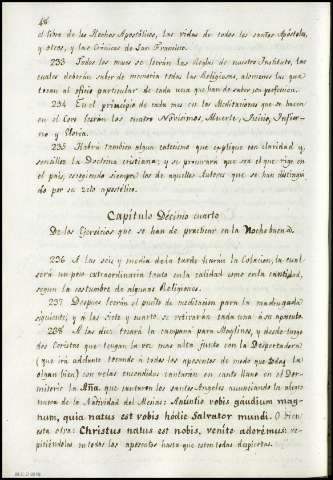 48
el libro de los Hechos Apostólicos, las vidas de todos los santos Apóstoles,
y otros, y las Crónicas de San Francisco.
233 Todos los meses se leerán las Reglas de nuestro Instituto, las
cuales deberán saber de memoria todas las Religiosas, alomenos las que
tocan al oficio particular de cada una que han de saber con perfección.
234 En el principio de cada mes en las Meditaciones que se hacen
en el Coro leerán los cuatro Novísimos, Muerte, Juicio, Infier-
no y Gloria.
235 Habrá tambien algun catecismo que explique con claridad y
sencillez la Doctrina cristiana; y se procurará que sea el que rige en
el país, escogiendo siempre los de aquellos Autores que se han distingui-
do por su zelo apostólico.
Capítulo Décimo cuarto
De los Ejercicios que se han de practicar en la Noche buena.
236 A las seis y media de la tarde harán la Colación, la cual
será un poco extraordinaria tanto en la calidad como en la cantidad,
segun la costumbre de algunas Religiones.
237 Despues leerán el punto de meditacion para la madrugada
siguiente; y á las siete y cuarto se retirarán cada una á su aposento.
238 A las diez tocará la campana para Maytines, y desde luego
dos Coristas que tengan la voz mas alta junto con la Despertadora
(que irá adelante tocando á todos los aposentos de modo que todas la
oigan bien) con velas encendidas cantarán en canto llano en el Dor-
mitorio la Aña. que cantaron los santos Angeles anunciando la alegre
nueva de la Natividad del Mesias: Anúntio vobis gáudium mag-
num, quia natus est vobis hódie Salvator mundi. O bien
esta otra: Christus natus est nobis, venite adorémus: re-
pitiéndolas en todos los aposentos hasta que esten todas despiertas.